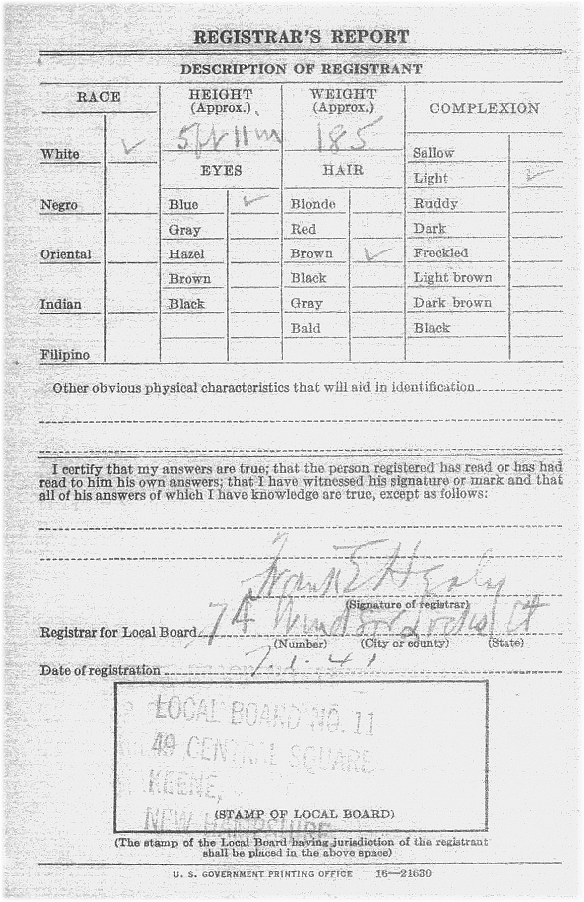 REGISTRAR'S REPORT
DESCRIPTION OF REGISTRANT
RACE
HEIGHT
(Approx.)
WEIGHT
(Approx.)
COMPLEXION
5 ft 11 in
185
White ✓
EYES
HAIR
Sallow
Light ✓
Negro
Blue ✓
Blonde
Ruddy
Gray
Red
Dark
Oriental
Hazel
Brown ✓
Freckled
Brown
Black
Light brown
Indian
Black
Gray
Dark brown
Bald
Black
Filipino
Other obvious physical characteristics that will aid in identification
I certify that my answers are true; that the person registered has read or has had
read to him his own answers; that I have witnessed his signature or mark and that
all of his answers of which I have knowledge are true, except as follows:
Frank E Healy
(Signature of registrar)
Registrar for Local Board 7A Windsor Ct
(Number) (City or county) (State)
Date of registration 7-1-41
LOCAL BOARD NO. 11
49 CENTRAL SQUARE
KEENE,
NEW HAMPSHIRE
(STAMP OF LOCAL BOARD)
(The stamp of the Local Board having jurisdiction of the registrant
shall be placed in the above space)
U. S. GOVERNMENT PRINTING OFFICE 16—21630